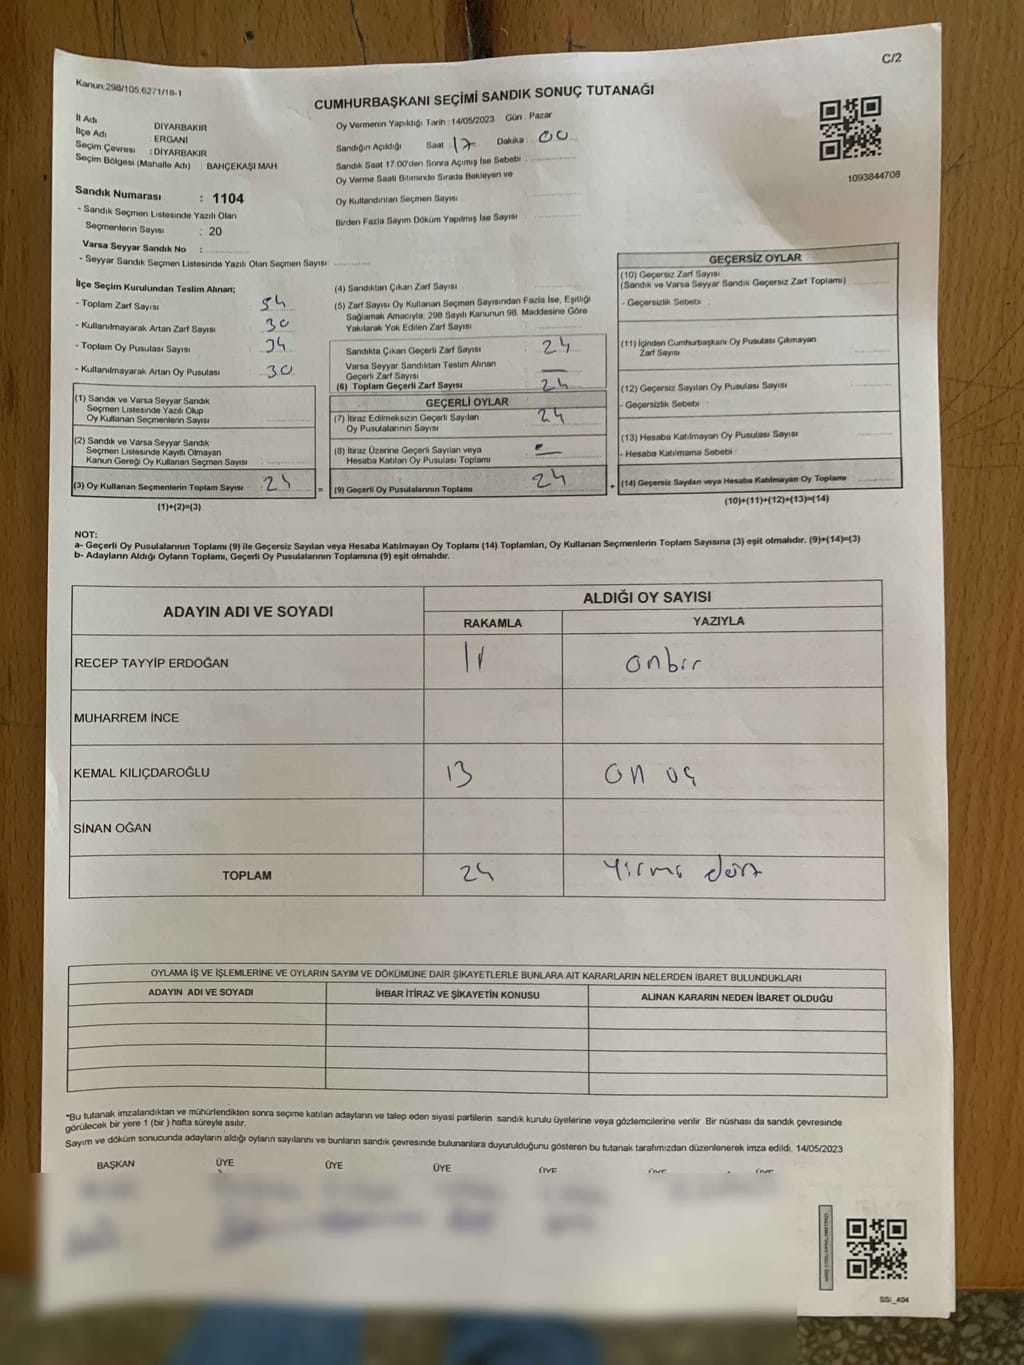 C/2
Kanun;298/105,6271/18-1
CUMHURBAŞKANI SEÇİMİ SANDIK SONUÇ TUTANAĞI
İl Adı DİYARBAKIR
İlçe Adı : ERGANİ
Seçim Çevresi : DİYARBAKIR
Seçim Bölgesi (Mahalle Adı) : BAHÇEKAŞI MAH.
Oy Vermenin Yapıldığı Tarih : 14/05/2023 Gün : Pazar
Sandığın Açıldığı Saat 17 Dakika : 00
Sandık Saat 17:00'den Sonra Açımış İse Sebebi :
Oy Verme Saati Bitiminde Sırada Bekleyen ve
Oy Kullandırılan Seçmen Sayısı :
Birden Fazla Sayım Döküm Yapılmış İse Sayısı
1093844708
Sandık Numarası : 1104
- Sandık Seçmen Listesinde Yazılı Olan
Seçmenlerin Sayısı : 20
Varsa Seyyar Sandık No :
- Seyyar Sandık Seçmen Listesinde Yazılı Olan Seçmen Sayısı:
İlçe Seçim Kurulundan Teslim Alınan;
- Toplam Zarf Sayısı : 54
- Kullanılmayarak Artan Zarf Sayısı : 30
- Toplam Oy Pusulası Sayısı
- Kullanılmayarak Artan Oy Pusulası : 30
(1) Sandık ve Varsa Seyyar Sandık
Seçmen Listesinde Yazılı Olup
Oy Kullanan Seçmenlerin Sayısı
(2) Sandık ve Varsa Seyyar Sandık
Seçmen Listesinde Kayıtlı Olmayan
Kanun Gereği Oy Kullanan Seçmen Sayısı
(3) Oy Kullanan Seçmenlerin Toplam Sayısı : 24
(1)+(2)=(3)
(4) Sandıktan Çıkan Zarf Sayısı
(5) Zarf Sayısı Oy Kullanan Seçmen Sayısından Fazla İse, Eşitliği
Sağlamak Amacıyla; 298 Sayılı Kanunun 98. Maddesine Göre
Yakılarak Yok Edilen Zarf Sayısı
Sandıkta Çıkan Geçerli Zarf Sayısı 24
Varsa Seyyar Sandıktan Teslim Alınan
Geçerli Zarf Sayısı —
(6) Toplam Geçerli Zarf Sayısı 24
GEÇERLİ OYLAR
(7) İtiraz Edilmeksizin Geçerli Sayılan
Oy Pusulalarının Sayısı 24
(8) İtiraz Üzerine Geçerli Sayılan veya
Hesaba Katılan Oy Pusulası Toplamı
= (9) Geçerli Oy Pusulalarının Toplamı 24
GEÇERSİZ OYLAR
(10) Geçersiz Zarf Sayısı
(Sandık ve Varsa Seyyar Sandık Geçersiz Zarf Toplamı)
- Geçersizlik Sebebi :
(11) İçinden Cumhurbaşkanı Oy Pusulası Çıkmayan
Zarf Sayısı
(12) Geçersiz Sayılan Oy Pusulası Sayısı
- Geçersizlik Sebebi :
(13) Hesaba Katılmayan Oy Pusulası Sayısı
- Hesaba Katılmama Sebebi :
+ (14) Geçersiz Sayılan veya Hesaba Katılmayan Oy Toplamı
(10)+(11)+(12)+(13)=(14)
NOT:
a- Geçerli Oy Pusulalarının Toplamı (9) ile Geçersiz Sayılan veya Hesaba Katılmayan Oy Toplamı (14) Toplamları, Oy Kullanan Seçmenlerin Toplam Sayısına (3) eşit olmalıdır. (9)+(14)=(3)
b- Adayların Aldığı Oyların Toplamı, Geçerli Oy Pusulalarının Toplamına (9) eşit olmalıdır.
ADAYIN ADI VE SOYADI
ALDIĞI OY SAYISI
RAKAMLA YAZIYLA
RECEP TAYYİP ERDOĞAN 11 onbir
MUHARREM İNCE
KEMAL KILIÇDAROĞLU 13 on üç
SİNAN OĞAN
TOPLAM 24 Yirmi dört
OYLAMA İŞ VE İŞLEMLERİNE VE OYLARIN SAYIM VE DÖKÜMÜNE DAİR ŞİKAYETLERLE BUNLARA AİT KARARLARIN NELERDEN İBARET BULUNDUKLARI
ADAYIN ADI VE SOYADI İHBAR İTİRAZ VE ŞİKAYETİN KONUSU ALINAN KARARIN NEDEN İBARET OLDUĞU
*Bu tutanak imzalandıktan ve mühürlendikten sonra seçime katılan adayların ve talep eden siyasi partilerin sandık kurulu üyelerine veya gözlemcilerine verilir. Bir nüshası da sandık çevresinde
görülecek bir yere 1 (bir ) hafta süreyle asılır.
Sayım ve döküm sonucunda adayların aldığı oyların sayılarını ve bunların sandık çevresinde bulunanlara duyurulduğunu gösteren bu tutanak tarafımızdan düzenlenerek imza edildi. 14/05/2023
BAŞKAN ÜYE ÜYE ÜYE ÜYE ÜYE ÜYE
SSI_404